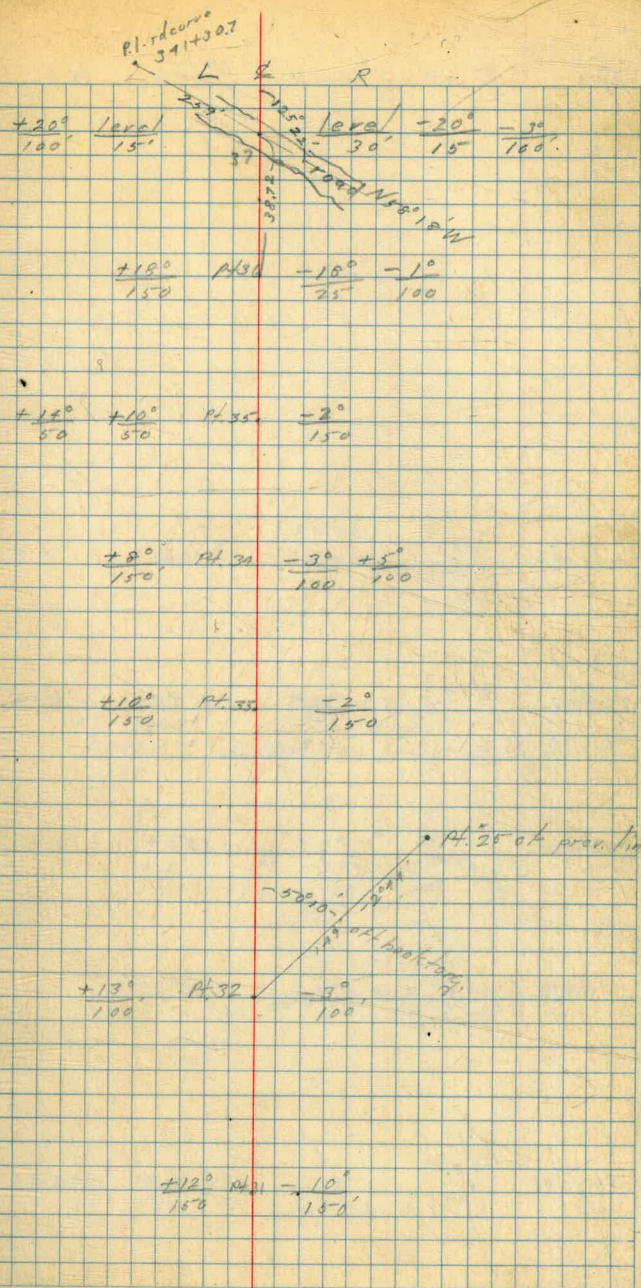 P.I. rd curve
341+30.7
L ℄ R
+20°/100' level/15' 259' 125°22' level/30' -20°/15 -3°/100'
37 road N58°18'W
38.72
+18°/150 Pt.36 -18°/25 -1°/100
+14°/50 +10°/50 Pt.35 -2°/150
+8°/150' Pt.34 -3°/100 +5°/100
+10°/150 Pt.33 -2°/150
Pt. 25 of prev. lin
50°10'
off back tang.
+13°/100' Pt.32 -3°/100'
+12°/150 Pt31 -10°/150'